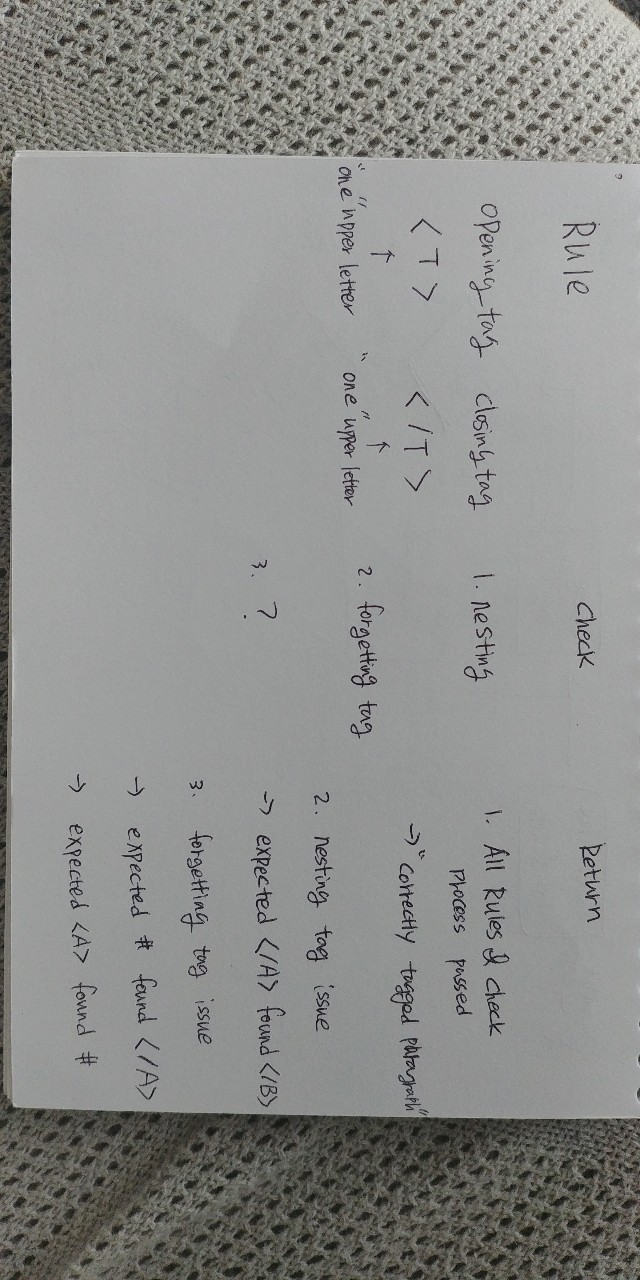 Rule
Opening tag
closing tag
<T>
</T>
↑
↑
"one" upper letter
"one" upper letter
check
1. nesting
2. forgetting tag
3. ?
Return
1. All Rules & check
process passed
→ "correctly tagged paragraph"
2. nesting tag issue
→ expected </A> found </B>
3. forgetting tag issue
→ expected # found </A>
→ expected <A> found #